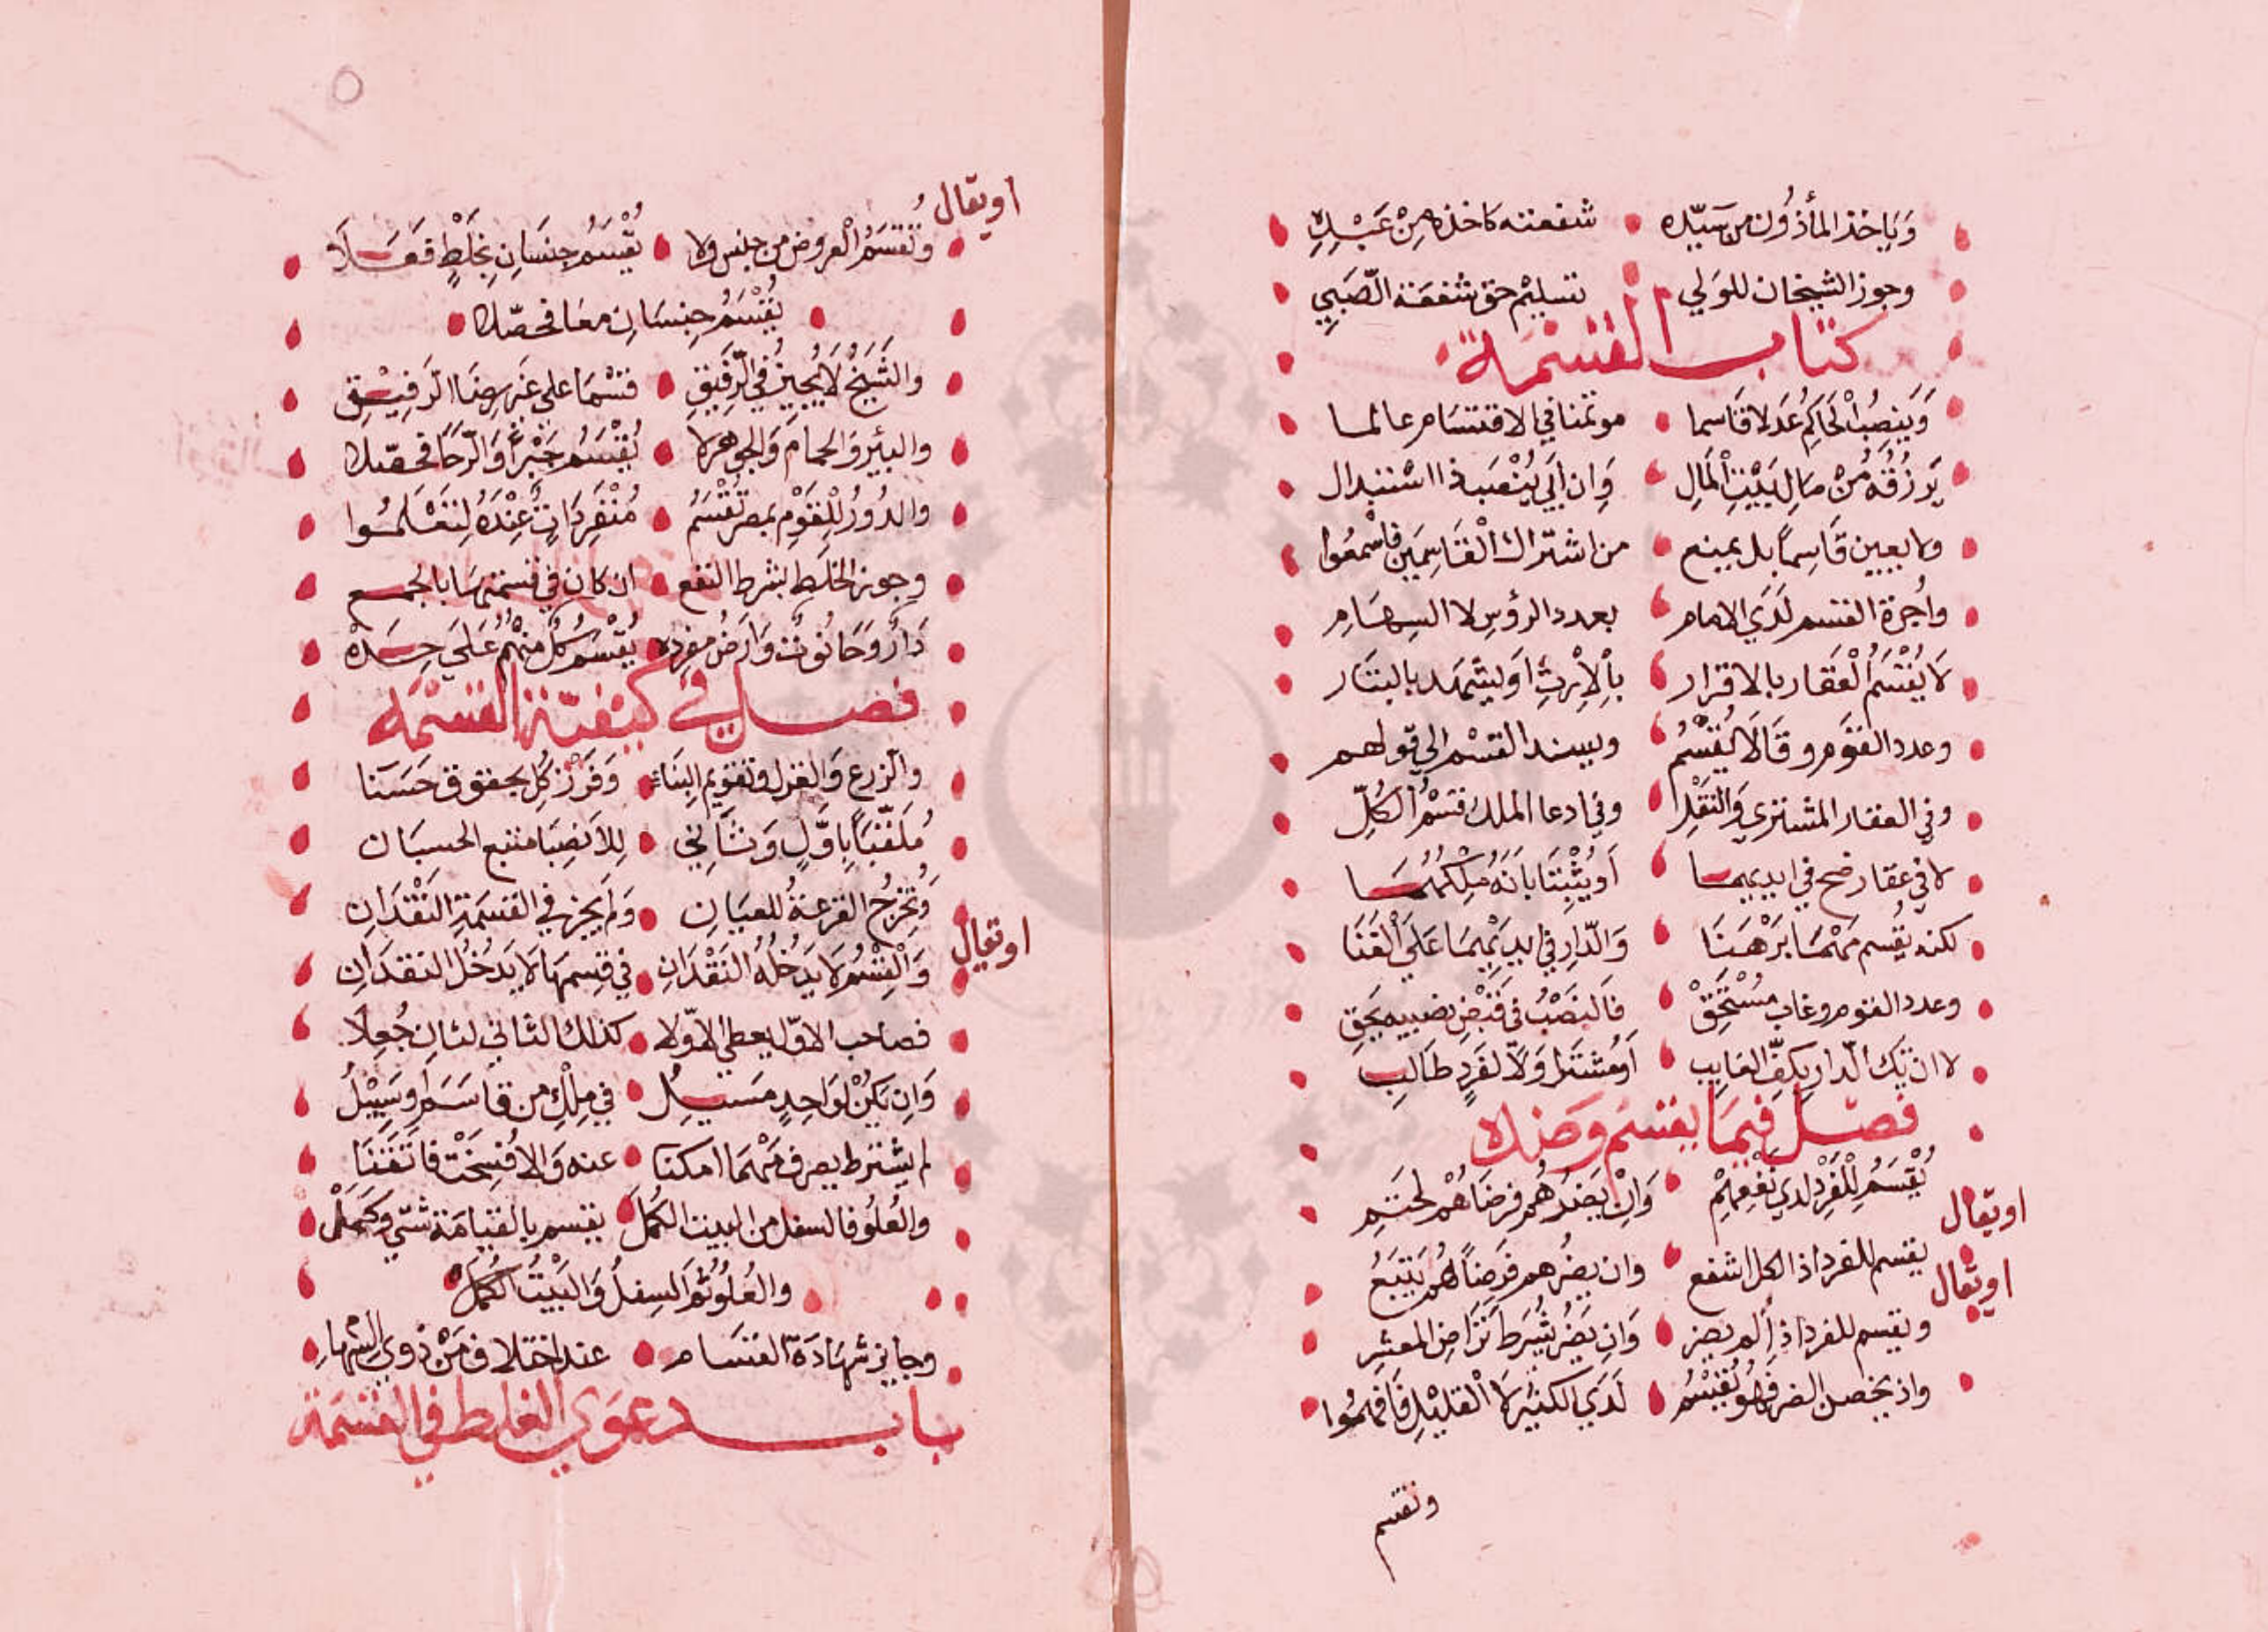 وَيَاخذ المأذُون من سَيّده شفعته كاخذه مِنْ عَبْدِهِ
وجوز الشيخان للوَلي تسليْم حق شفعَة الصَبِيِ
كتاب القسْمَة
وَيَنصِبُ الْحَاكِمُ عَدلا قَاسما موتمنا في الاقتسَام عالما
يَرزُقُه مُنْ مَالِ بَيْتِ الْمَالِ وَان اَبَي يُنْصَب ذا اسْتبدال
ولا يعيين قَاسِماً بل يمنع من اشتراك الْقَاسِمَيِن فاسْمعُوا
واُجرة القسم لَدَي الامام بعدد الرؤسِ لا السِهَامِ
لَا يُقْسَمُ الْعَقار بالاقرار بِاْلاِرثِ اَو ليشْهَد بالبتَار
وعدد القَوم وقَالَا يُقسْمُ ويسند القسْم الي قوْلهم
وفي العقار المشتري وَالنقْلِ وفي ادعا الملك قسْمُ الكُلِّ
لا في عقار ضح في ايديهما اَو يُثْبِتَا بَانَهُ مِلْكُهُمَا
لكنه يُقسم مَهْمَا بَرْهَنَا وَالدّارِ في ايديْهِمَا عَلَي القَنَا
وعدد القوم وغاب مُسْتَحِقْ فَالنصْبُ في قَبْضِ نصيبه يحَق
لا ان تَك الدار بِكفِّ الغَايِب اَو مُشتَرا وَلَا لفَردٍ طَالِبِ
فصل فيمَا يقسَم وَضده
اويقال يُقْسَمُ لِلْفَرْدِ لدي نَفْعِهِمْ وَاِنْ يَضُرُ هُم فرِضَاهُمْ لحتم
اويقال يقسم للفرد اذ الكل اشفع وان يضُرهم فرَضاً لهم يَتبَعُ
ويقسم للفرد اذا لم يضر وَان يَضُر شُرِطَ تَرَاضِ المعشِر
واذ يخصل الضر فَهُو يُقسْم لَدَي الكثيْر لَا الْقليْلِ فَافهمُوا
وتقسم
اويقال وَتُقسَمُ الْعروض من جنس ولا يُقْسَمُ جِنسَانِ بِخَلْطٍ فعَلَا
يُقْسَمُ جِنسَانِ معَا فحصّلا
والشَيخُ لَا يُجِيزُ في الرَقِيقِ قسْمَا علي غَير رِضَا الرَفِيْقِ
والبئيْر وَالحمامَ وَالجوهرَ لا يُقْسَمُ جَبْراً وَالرّحَا فحصّلا
والدُورُ للْقَوْمِ بمصر تُقْسَمُ مُنْفَرِدَاتٌ عِنْدَهُ لِتَعْلَمُوا
وجوز الخلَط بشرط النفع ان كان في قسمتهَا بالجمع
دَارٌ وَحَانُوتٌ وَارَضُ مفرده يُقْسَمُ كُلٌ مِنْهُمُ عَلَي حِدَهْ
فصل في كيفيّة القسْمَه
والزرع وَالغزل وتقويم البِنَاء وَفَرْز كُلٍ بحقوق حَسَنا
مُلَقّبَاً بِاوَّلٍ وَثَانِي لِلاَنصِبَا متبع الحسبَان
وَتُخرَجُ القرعَةُ للعيَانِ وَلَم يجز في القسمَةِ النَقْدَانِ
اويقال وَاْلقِسْمُ لَا يَدخُلهُ النَقْدَانِ في قِسِمهَا لَا يَدْخُلُ النقدَانِ
فصاحب الاوّل يعطي الاوّلا كذلك الثاني لثانٍ جُعِلَا
وَان يَكُنْ لوَاحِدٍ مَسَيلُ في مِلْكِ من قَاسَمَ اَو سَبِيْلُ
لم يشترط يصرف مَهْمَا امكنَا عنه وَالا فُسِخَتْ فاتقنَا
والعُلو فالسفل من البيت الكُمّل يقسم بالقيَامَة شتي وكَمُلْ
والعُلوُ ثُم السِفلُ وَالبَيْتُ الكُمّلْ
وجايز شهَادَة القسَام عند اختلاف مَنْ ذَوي السِهَامِ
باب دعوَي الغلط في القسْمَة